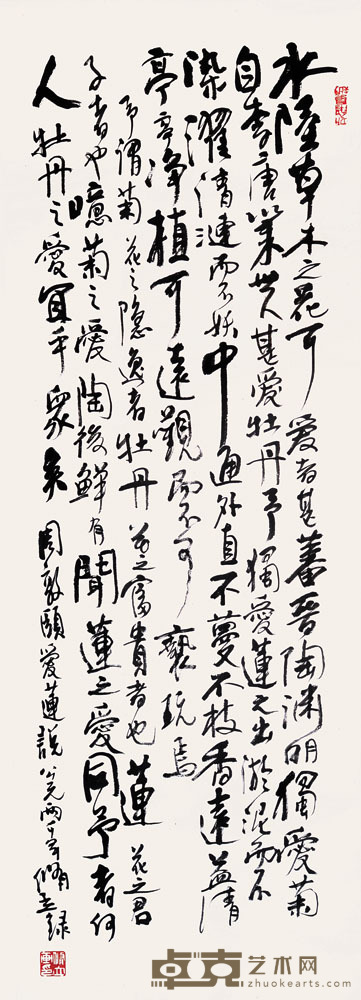 水陸草木之花可愛者甚蕃晋陶渊明獨愛菊
自李唐来世人甚愛牡丹予獨愛蓮之出淤泥而不
染濯清漣而不妖中通外直不蔓不枝香遠益清
亭亭净植可遠觀而不可褻玩焉
予謂菊花之隐逸者牡丹花之富貴者也蓮花之君
子者也噫菊之愛陶後鮮有聞蓮之愛同予者何
人牡丹之愛宜乎衆矣
周敦頤愛蓮説公元两千年録
卓克艺术网
zhuokearts.com